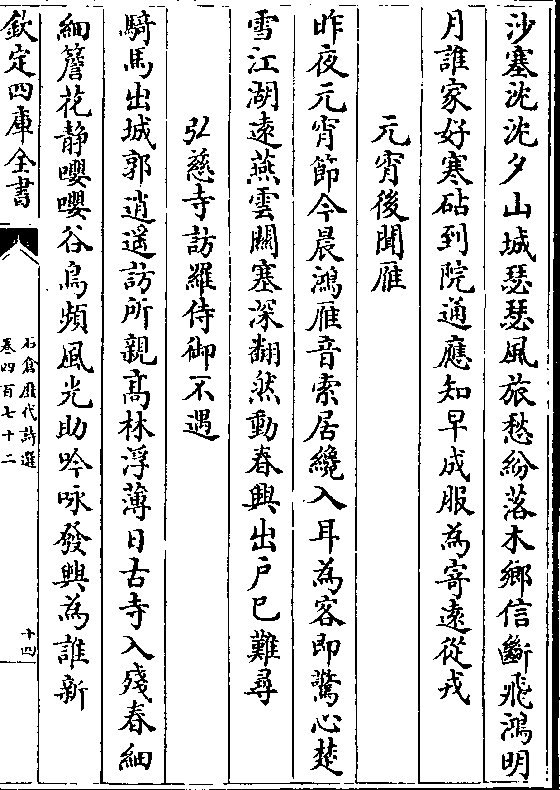 沙塞沈沈夕山城瑟瑟風旅愁紛落木鄉信斷飛鴻明
月誰家好寒砧到院通應知早成服為寄遠從戎
元宵後聞雁
昨夜元宵節今晨鴻雁音索居纔入耳為客即驚心楚
雪江湖遠燕雲關塞深翻然動春興出戶已難尋
弘慈寺訪羅侍御不遇
騎馬出城郭逍遙訪所親高林浮薄日古寺入殘春細
細簷花静嚶嚶谷鳥頻風光助吟咏發興為誰新
欽定四庫全書
石倉歷代詩選
卷四百七十二
十四